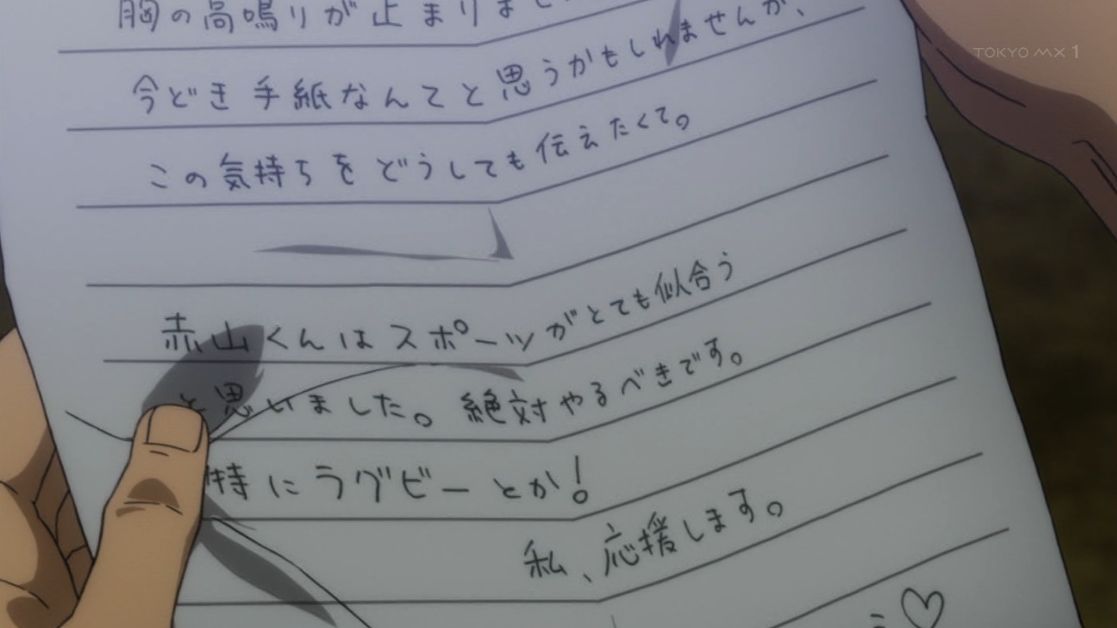 胸の高鳴りが止まりませ
TOKYO MX1
今どき手紙なんてと思うかもしれませんが、
この気持ちをどうしても伝えたくて。
赤山くんはスポーツがとても似合う
と思いました。絶対やるべきです。
特にラグビーとか!
私、応援します。
♡